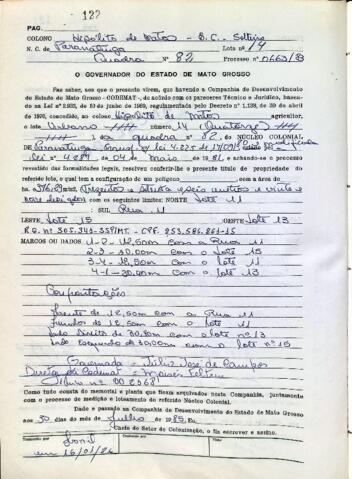 122
PAG.
COLONO Hipólito de Matos - B.C. - Solteiro
N. C. de Paranatinga Lote nº 14
Quadra Nº 82 Processo nº 0663/8
O GOVERNADOR DO ESTADO DE MATO GROSSO
Faz saber, aos que o presente virem, que havendo a Companhia de Desenvolvimento
do Estado de Mato Grosso -CODEMAT-, de acordo com os pareceres Técnico e Jurídico, basea-
do na Lei nº 2.922, de 10 de junho de 1969, regulamentada pelo Decreto nº 1.138, de 29 de abril
de 1970, concedido, ao colono Hipólito de Matos agricultor,
o lote Urbano número 14 (Quatorze)
da quadra 82 DO NÚCLEO COLONIAL
de Paranatinga, lei 4.225 de 17/09/
lei 4.887 de 04 de maio de 1986 e achando-se o processo
revestido das formalidades legais, resolveu conferir-lhe o presente título de propriedade do
referido lote, o qual tem a configuração de um polígono
ha 376,29 mts2 (Trezentos e setenta e seis metros e vinte e
nove decímetros) com os seguintes limites: NORTE Lote 11
SUL Rua 11
LESTE Lote 15 OESTE Lote 13
R.G. nº 305.341-SSP/MT - CPF. 253.586.861-15
MARCOS OU DADOS 1-2 - 12,50m com a Rua 11
2-3 - 30,00m com o lote 15
3-4 - 12,50m com o lote 11
4-1 - 30,00m com o lote 13
Confrontações
Frente de 12,50m com a Rua 11
Fundos de 12,50m com o lote 11
Lado Direito de 30,00m com o lote nº 13
Lado esquerdo de 30,00m com o lote nº 15
Governador - Júlio José de Campos
Diretor da Codemat - Moisés Feltrin
Título nº 002681
Como tudo consta do memorial e planta que ficam arquivados nesta Companhia, juntamente
com o processo de medição e loteamento do referido Núcleo Colonial.
Dado e passado na Companhia de Desenvolvimento do Estado de Mato Grosso
aos 30 dias do mês de Julho de 1985 Eu,
Chefe do Setor de Colonização, o fiz escrever e assino.
em 16/01/86